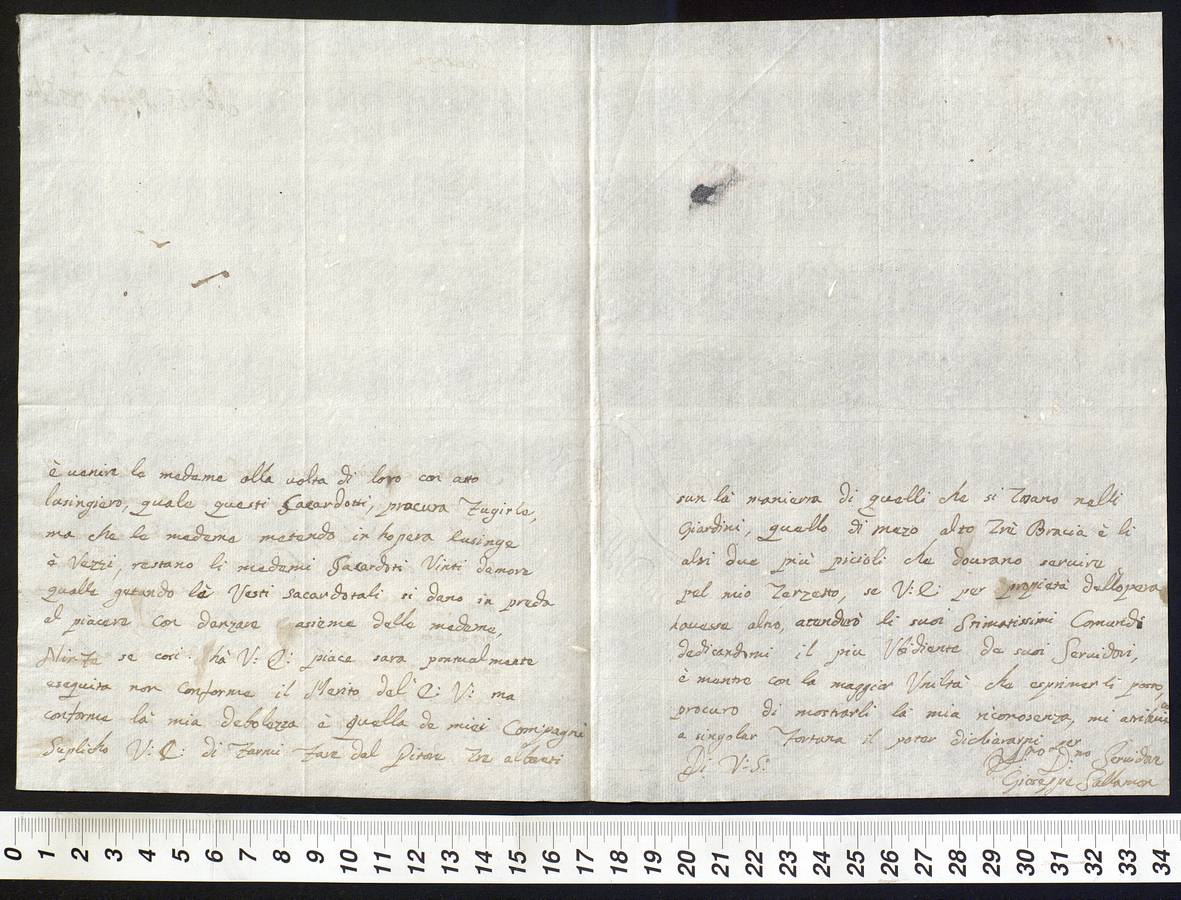 è venire le medeme alla volta di loro con atto
lusingiero, quale questi Sacardotti, procura Fugirle,
ma che le medeme metendo in hopera lusinge
è Vezzi, restano li medemi Sacardoti Vinti damore
qualli getando le Vesti sacardotali si dano in preda
al piacere con danzare asieme delle medeme,
Ninfe se cosi hà V: E: piace sara pontualmente
eseguita non Conforme il Merito del E: V: ma
conforme la mia debolezza è quella de miei Compagni
Suplicho V: E: di Farmi Fare dal Pitore Tre alberi
sun la maniera di quelli che si Trano nelli
Giardini, quello di mezo alto Trè Bracia è li
altri due più picioli che dourano servire
pel mio Terzetto, se V: E: per propietà dell'opera
avesse altro, atenderò li suoi Stimatissimi Comandi
dedicandomi il piu Vbidiente de suoi Servidori,
è mentre con la maggior Vmiltà che esprimerli posso
procuro di mostrarli la mia riconosenza, mi atribuisco
a singolar Fortuna il poter dichiararmi per
Di V: S:
Servidore
Gioseppe Sallamon
0 1 2 3 4 5 6 7 8 9 10 11 12 13 14 15 16 17 18 19 20 21 22 23 24 25 26 27 28 29 30 31 32 33 34